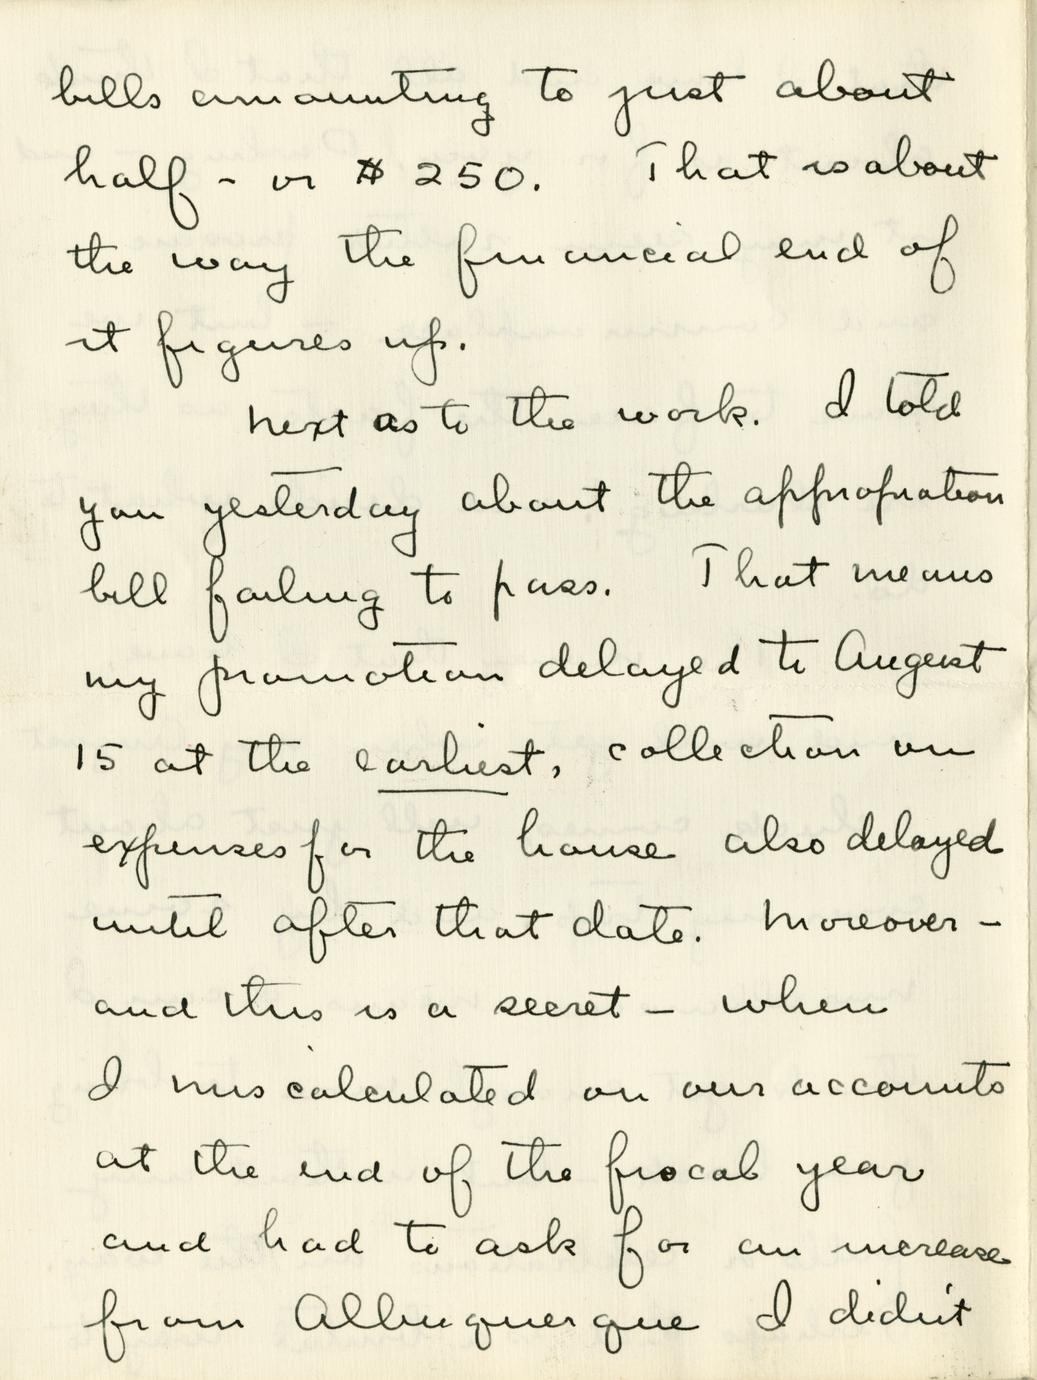 bills amounting to just about
half - or $250. That is about
the way the financial end of
it figures up.
Next as to the work. I told
you yesterday about the appropriation
bill failing to pass. That means
my promotion delayed to August
15 at the earliest, collection on
expenses for the house also delayed
until after that date. Moreover -
and this is a secret - when
I miscalculated on our accounts
at the end of the fiscal year
and had to ask for an increase
from Albuquerque I didn't